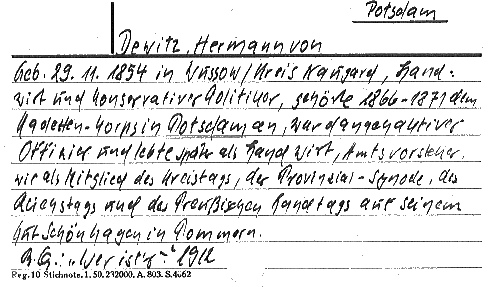 Potsdam
Dewitz, Hermann von
Geb. 29. 11. 1854 in Wussow/Kreis Naugard, Land-
wirt und konservativer Politiker, gehörte 1866-1871 dem
Kadetten-Korps in Potsdam an, war dann aktiver
Offizier und lebte später als Landwirt, Amtsvorsteher,
wie als Mitglied des Kreistags, der Provinzial-Synode, des
Reichstags und des Preußischen Landtags auf seinem
Gut Schönhagen in Pommern.
"Wer ist's-" 1912
Reg. 10 Stichnote. 1. 50. 232000. A. 803. S. 4062